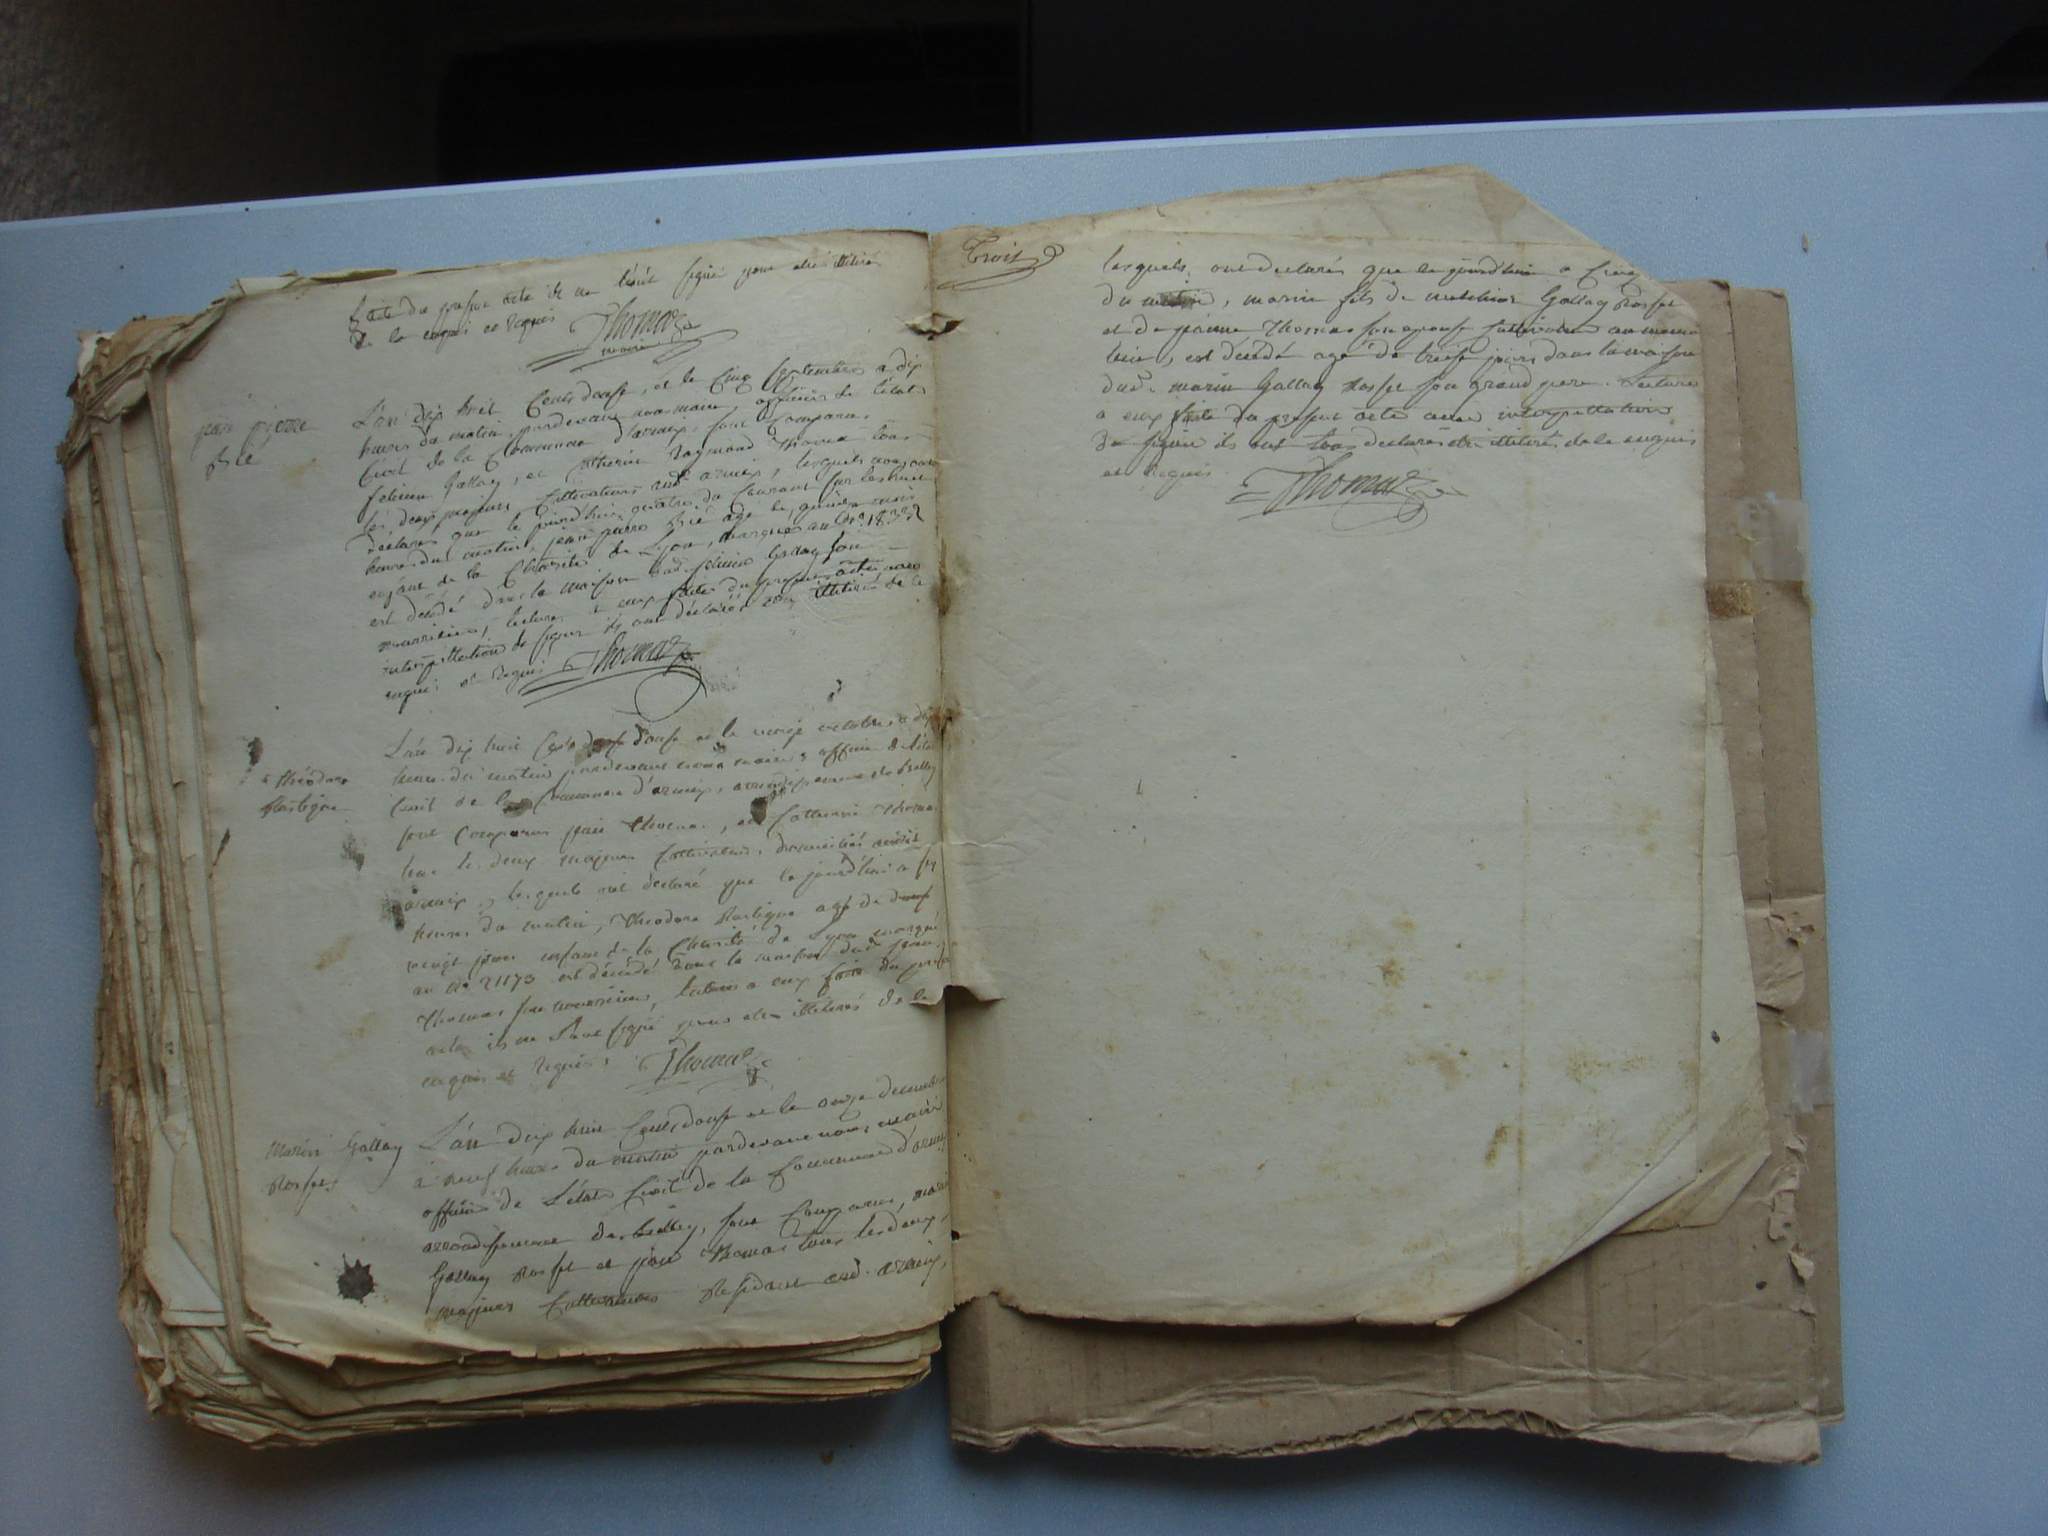 faite du present acte ils ne l'ont signé pour etre illitérés
de la enquis et requis Thomas
maire
jean pierre
L'an dix huit cents douse, et le cinq septembre a dix
heures du matin, pardevant nous maire, officier de l'état
Civil de la Commune d'armix, sont comparus,
felicien Gallay, et Catherin Raymond Thomas tous
les deux majeurs Cultivateurs aud. armix, lesquels nous ont
déclarés que le jourd'hui quatre du Courant sur les huit
heures du matin, jean pierre agé de quinze mois
enfant de la Charité de Lyon, marqué au No. 18332
est décédé dans la maison dud. felicien Gallay son
nourricier, lecture a eux faite du present acte avec
interpellation de signer ils ont déclarés etre illitérés de ce
enquis et requis Thomas
Théodore
Rastigne
L'an dix huit Cents douse et le vingt octobre a dix
heures du matin pardevant nous maire officier de l'état
Civil de la Commune d'armix, arrondissement de belley
sont comparus jean Thomas, et Catherin Thomas
tous les deux majeurs Cultivateurs, domiciliés audit
armix, lesquels ont déclaré que le jourd'hui a six
heures du matin, Théodore Rastigne agé de
vingt jours enfant de la Charité de Lyon marqué
au No 21173 est décédé dans la maison dud. jean
Thomas son nourricier, lecture a eux faite du present
acte ils ne l'ont signé pour etre illitérés de la
enquis et requis. Thomas
Marin Gallay
Rosset
L'an dix huit Cents douse et le onze decembre
a neuf heures du matin pardevant nous maire
officier de L'état Civil de la Commune d'armix
arrondissement de belley, sont Comparus, marin
Gallay Rosset et jean Thomas tous les deux,
majeurs Cultivateurs Residant aud. armix,
Trois
lesquels, ont declarés que le jourd'hui a Cinq
du matin, marin fils de melchior Gallay Rosset
et de jeanne Thomas son epouse Cultivateur
est décédé agé de treise jours dans la maison
dud. marin Gallay Rosset son grand pere. Lecture
a eux faite du present acte avec interpellation
de signer ils ont tous declarés etre illitérés de la enquis
et requis Thomas